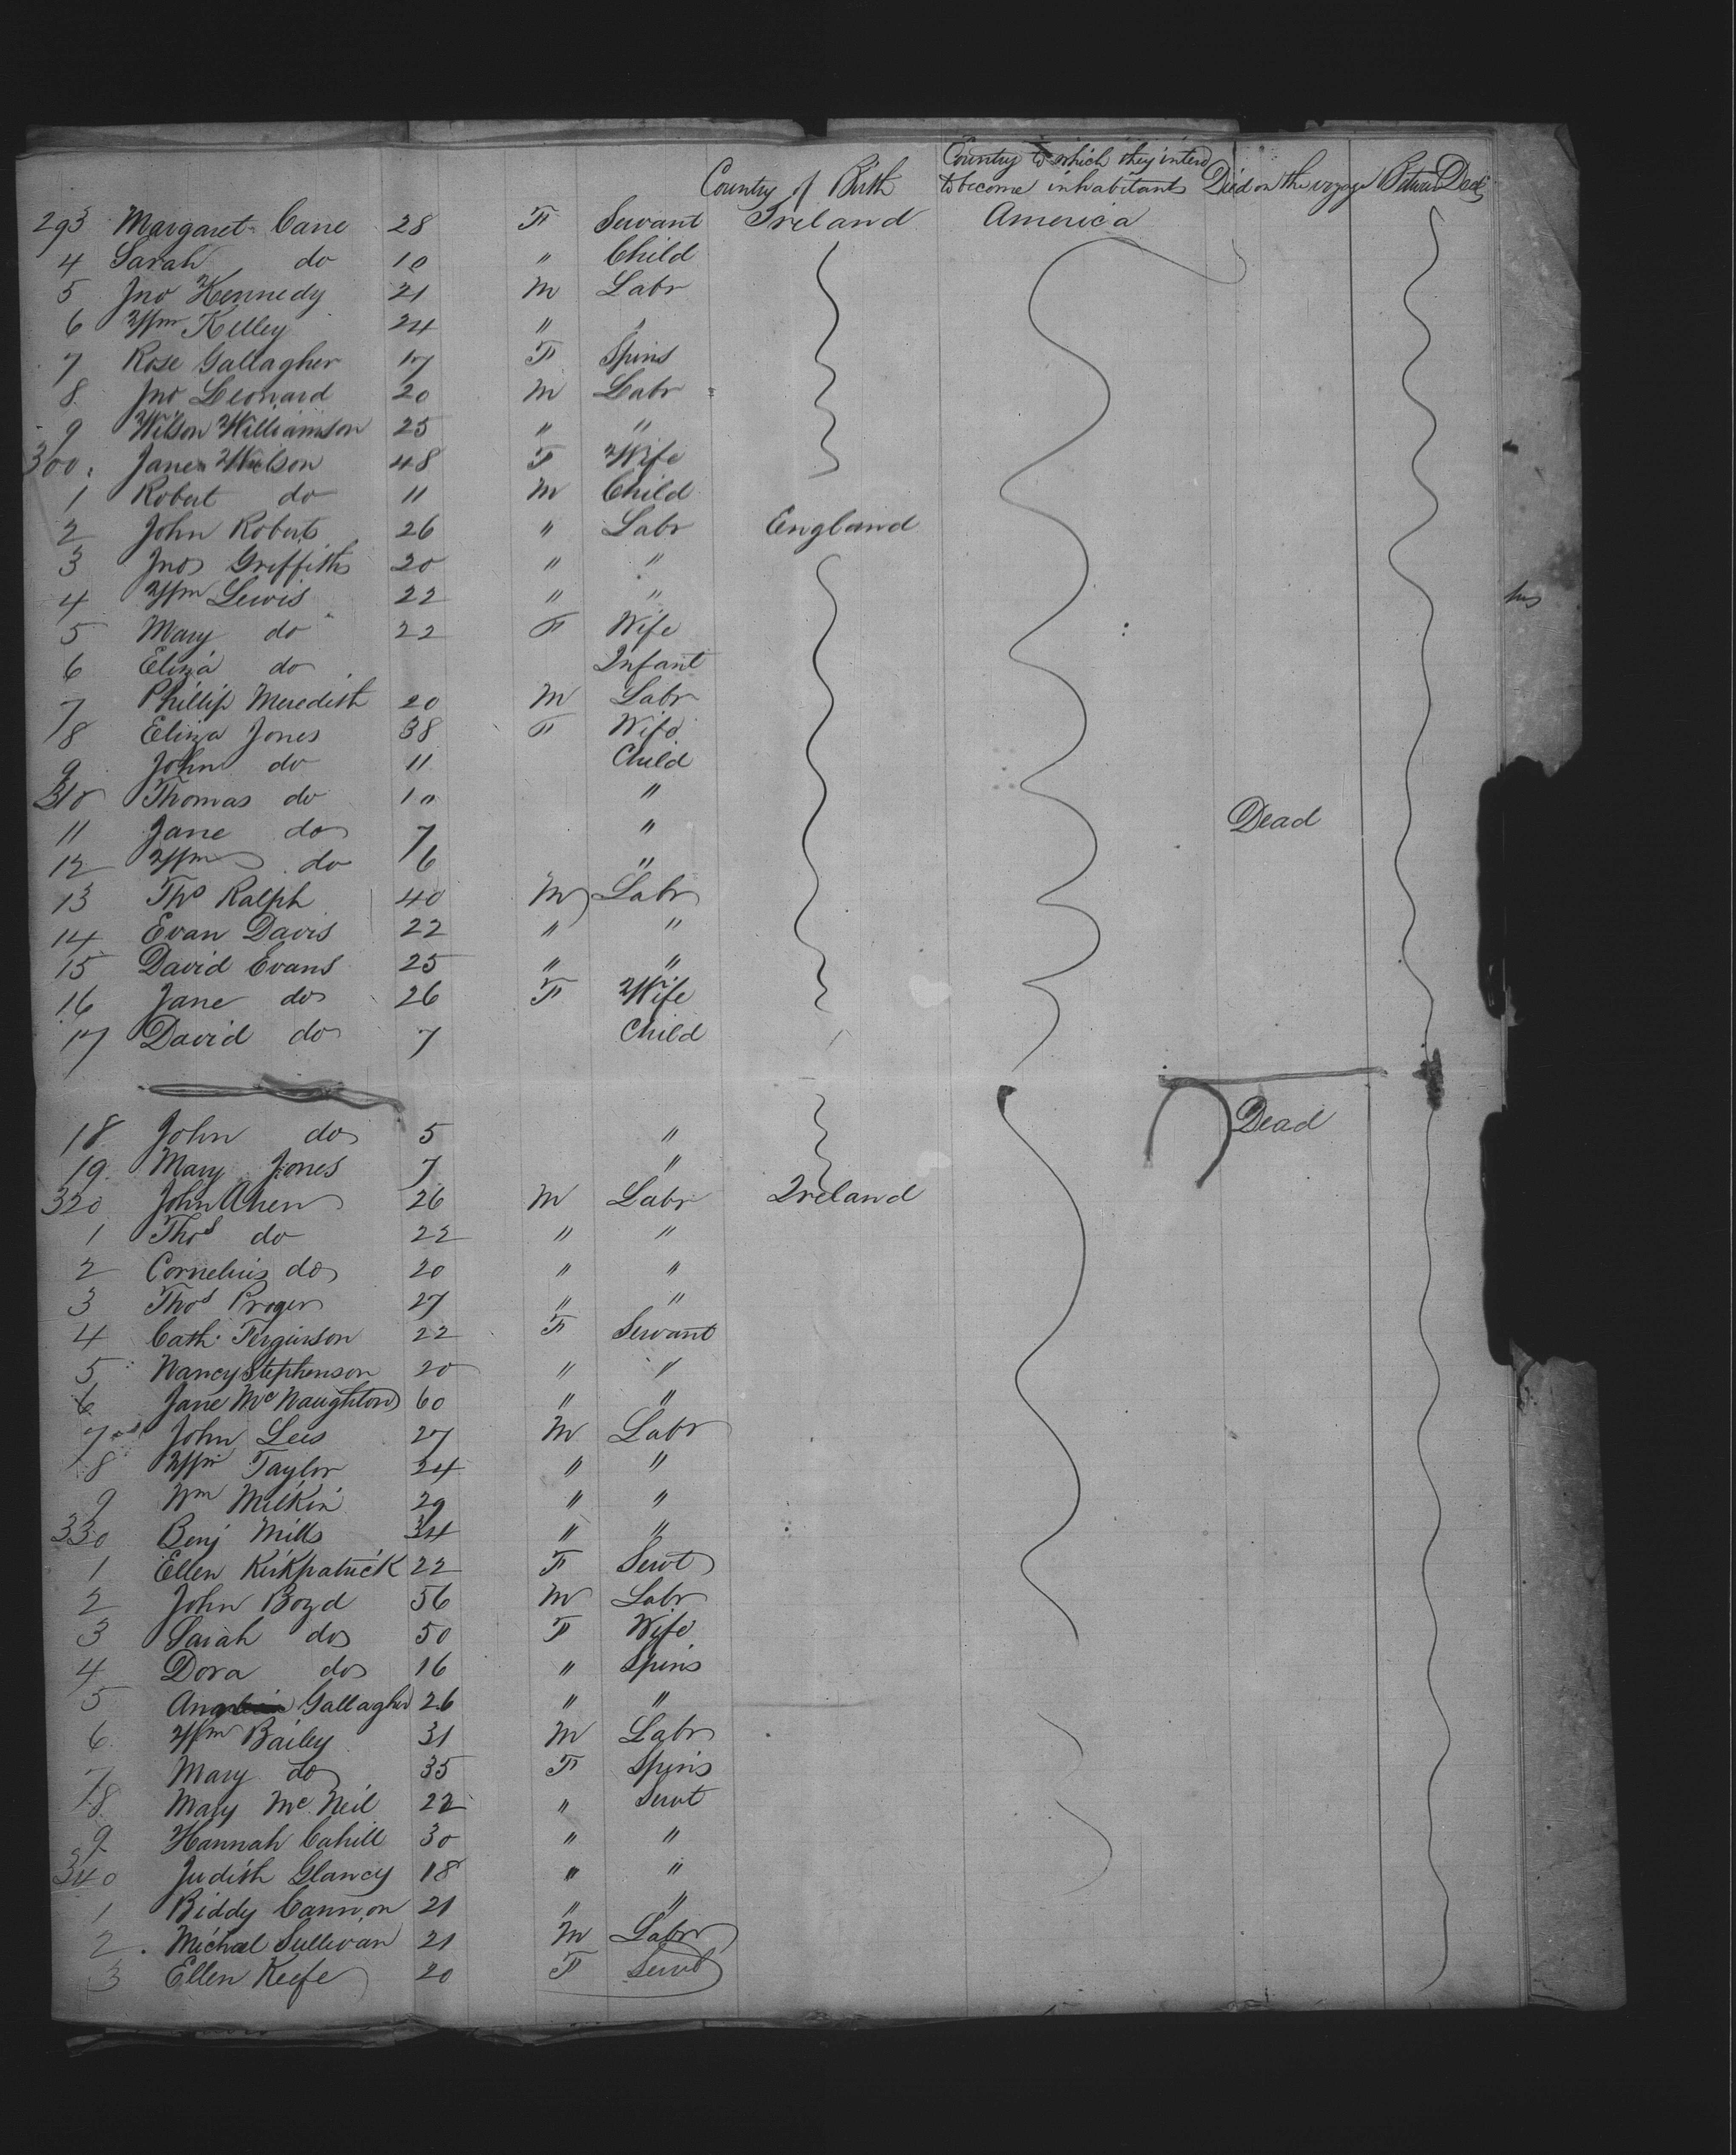 Country of Birth Country to which they intend to become inhabitants Died on the voyage Between Decks
293 Margaret Cane 28 F Servant Ireland America
4 Sarah do 10 " Child
5 Jno Kennedy 21 M Labr
6 Wm Kelley 24 " "
7 Rose Gallagher 17 F Spins
8 Jno Leonard 20 M Labr
9 Wilson Williamson 25 " "
300 Jane Wilson 48 F Wife
1 Robert do 11 M Child
2 John Roberts 26 " Labr England
3 Jnos Griffiths 20 " "
4 Wm Lewis 22 " "
5 Mary do 22 F Wife
6 Eliza do Infant
7 Phillip Meredith 20 M Labr
8 Eliza Jones 38 F Wife
9 John do 11 Child
310 Thomas do 10 "
11 Jane do 7 " Dead
12 Wm do 6 "
13 Thos Ralph 40 M Labr
14 Evan Davis 22 " "
15 David Evans 25 " "
16 Jane do 26 F Wife
17 David do 7 Child
18 John do 5 " Dead
19 Mary Jones 7 "
320 John Ahen 26 M Labr Ireland
1 Thos do 22 " "
2 Cornelius do 20 " "
3 Thos Proger 27 " "
4 Cath. Ferguson 22 F Servant
5 Nancy Stephenson 20 " "
6 Jane McNaughton 60 " "
7 John Lees 27 M Labr
8 Wm Taylor 24 " "
9 Wm Milkin 29 " "
330 Benj Mills 34 " "
1 Ellen Kirkpatrick 22 F Servt
2 John Boyd 56 M Labr
3 Sarah do 50 F Wife
4 Dora do 16 " Spins
5 Ann Gallagher 26 " "
6 Wm Bailey 31 M Labr
7 Mary do 35 F Spins
8 Mary McNeil 22 " Servt
9 Hannah Cahill 30 " "
340 Judith Glancy 18 " "
1 Biddy Cannon 21 " "
2 Michael Sullivan 21 M Labr
3 Ellen Keefe 20 F Servt